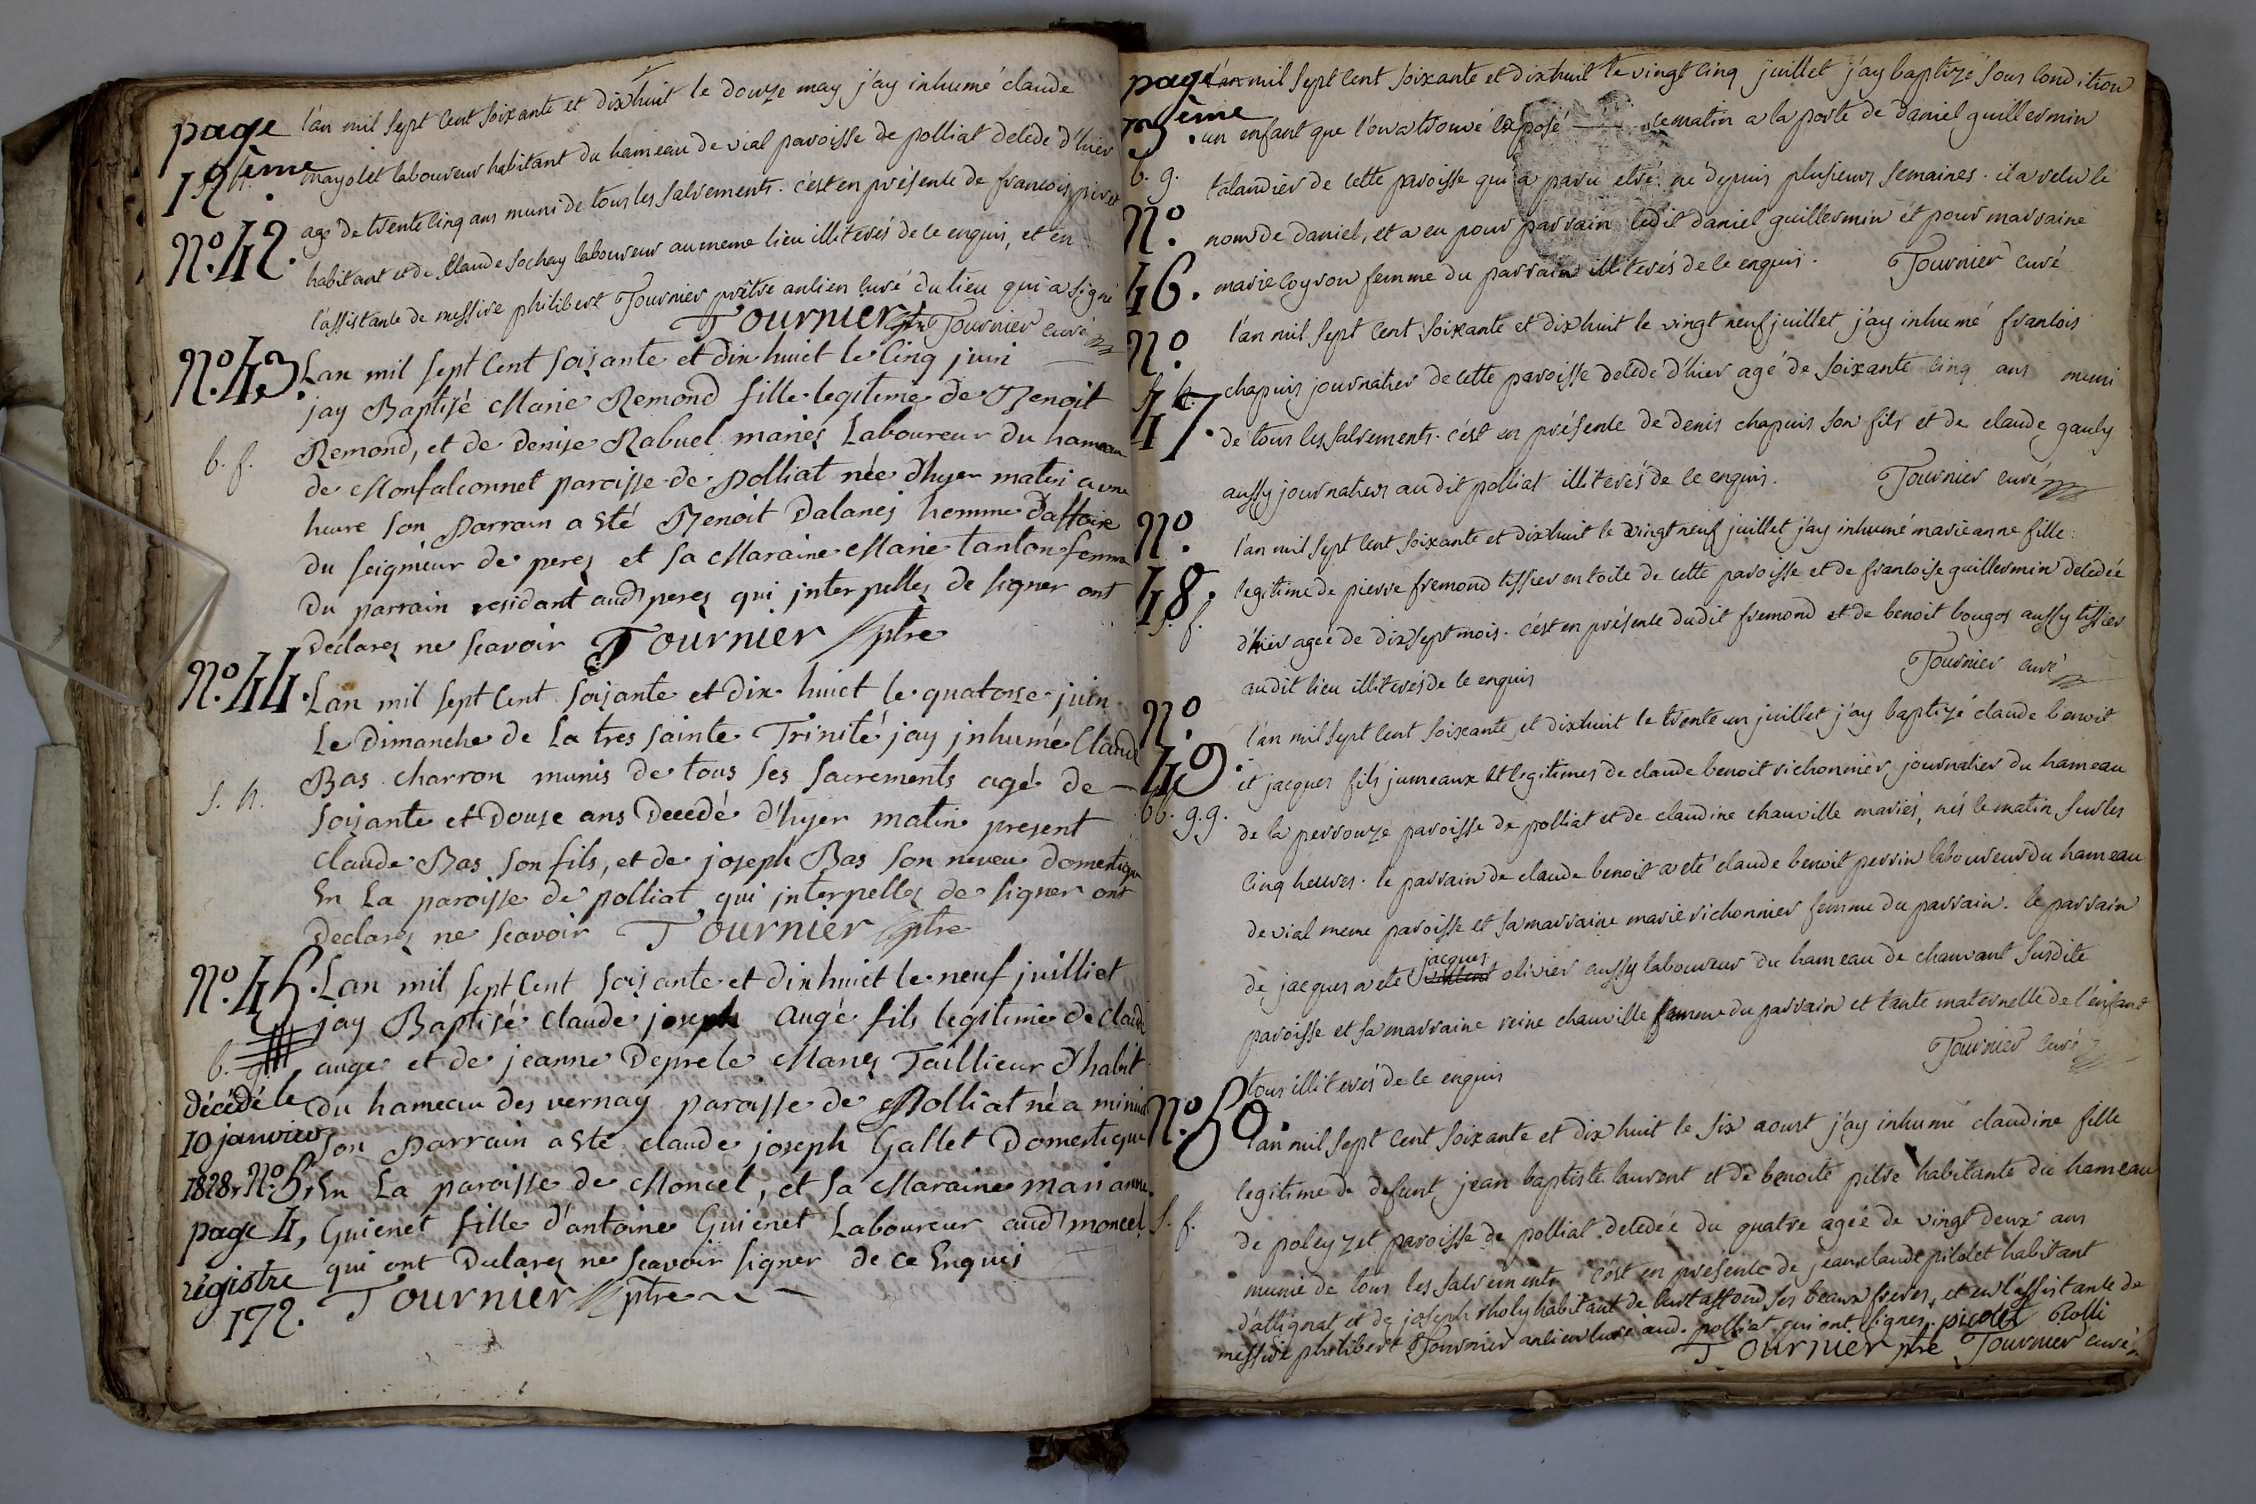 page
12ème.
l'an mil sept cent soixante et dixhuit le douze may j'ay inhumé claude
mayolet laboureur habitant du hameau de vial paroisse de polliat decede d'hier
N.º 42.
agé de trente cinq ans muni de tous les sacrements. c'est en présence de francois
habitant et de Claude sochay laboureur au meme lieu illiterés de ce enquis, et en
l'assistance de messire philibert Tournier prêtre ancien curé du lieu qui a signé
Tournier ptre Tournier curé
N.º 43.
Lan mil sept cent soisante et dix huict le cinq juin
jay Baptisé Marie Remond fille legitime de Benoit
b. f.
Remond, et de denise Rabuel mariés Laboureur du hameau
de Monfalconnet paroisse de Polliat née d'hyer matin a une
heure son Parrain a Eté Benoit Dalanes homme D'affaire
du seigneur de peres et sa Maraine Marie tanton femme
du parrain residant aud peres qui interpelles de signer ont
declares ne scavoir Tournier ptre
N.º 44.
Lan mil sept cent soisante et dix huict le quatorse juin
Le Dimanche de La tres sainte Trinité jay inhumé Claude
s. h.
Bas charron munis de tous ses sacrements agé de
soisante et Douse ans Decedé d'hyer matin present
Claude Bas son fils, et de joseph Bas son neveu domestique
En La paroisse de polliat qui interpelles de signer ont
Declares ne scavoir Tournier ptre
N.º 45.
Lan mil sept cent soisante et dix huict le neuf juilliet
jay Baptisé claude joseph augé fils legitime de Claude
b.
auge et de jeanne Deprele Maries Taillieur D'habit
décédé le
du hameau des vernay paroisse de Polliat né a minuit
10 janvier
son Parrain a Eté claude joseph Gallet Domestique
1828, N.º 5,
En La paroisse de Moncel, et sa Maraine marianne
page 4,
Guienet fille d'antoine Guienet Laboureur aud moncel
régistre
qui ont Declares ne scavoir signer de ce Enquis
172.
Tournier ptre
page
13ème.
l'an mil sept cent soixante et dixhuit le vingt cinq juillet j'ay baptizé sous condition
un enfant que l'on a trouvé exposé ce matin a la porte de daniel guillermin
b. g.
talandier de cette paroisse qui a paru etre né depuis plusieurs semaines. il a recu le
N.º
46.
nom de daniel, et a eu pour parrain ledit daniel guillermin et pour marraine
marie coyron femme du parrain illiterés de ce enquis. Tournier curé
N.º
47.
s. h.
l'an mil sept cent soixante et dixhuit le vingt neuf juillet j'ay inhumé francois
chapuis journalier de cette paroisse decede d'hier agé de soixante cinq ans muni
de tous les sacrements. c'est en présence de denis chapuis son fils et de claude gauly
aussy journaliers audit polliat illiterés de ce enquis. Tournier curé
N.º
48.
s. f.
l'an mil sept cent soixante et dixhuit le vingt neuf juillet j'ay inhumé marie anne fille
legitime de pierre fremond tissier en toile de cette paroisse et de francoise guillermin decedée
d'hier agée de dix sept mois. c'est en présence dudit fremond et de benoit bougos aussy tissier
audit lieu illiterés de ce enquis Tournier curé
N.º
49.
bb. g.g.
l'an mil sept cent soixante et dixhuit le trente un juillet j'ay baptizé claude benoit
et jacques fils jumeaux et legitimes de claude benoit richonnier journalier du hameau
de la perrouze paroisse de polliat et de claudine chauville mariés, nés le matin sur les
cinq heures. le parrain de claude benoit a eté claude benoit perrin laboureur du hameau
de vial meme paroisse et sa marraine marie richonnier femme du parrain. le parrain
jacques
de jacques a eté olivier aussy laboureur du hameau de chauvant susdite
paroisse et sa marraine reine chauville femme du parrain et tante maternelle de l'enfant
tous illiterés de ce enquis Tournier curé
N.º 50.
l'an mil sept cent soixante et dix huit le six aoust j'ay inhumé claudine fille
legitime de defunt jean baptiste laurent et de benoite pitre habitante du hameau
s. f.
de poleyzet paroisse de polliat decedée du quatre agée de vingt deux ans
munie de tous les sacrements c'est en présence de jean claude picolet habitant
d'attignat et de joseph rholy habitant de ses beaux freres, et en l'assistance de
messire philibert Tournier ancien curé aud. polliat qui ont signés. picolet Rolli
Tournier ptre Tournier curé